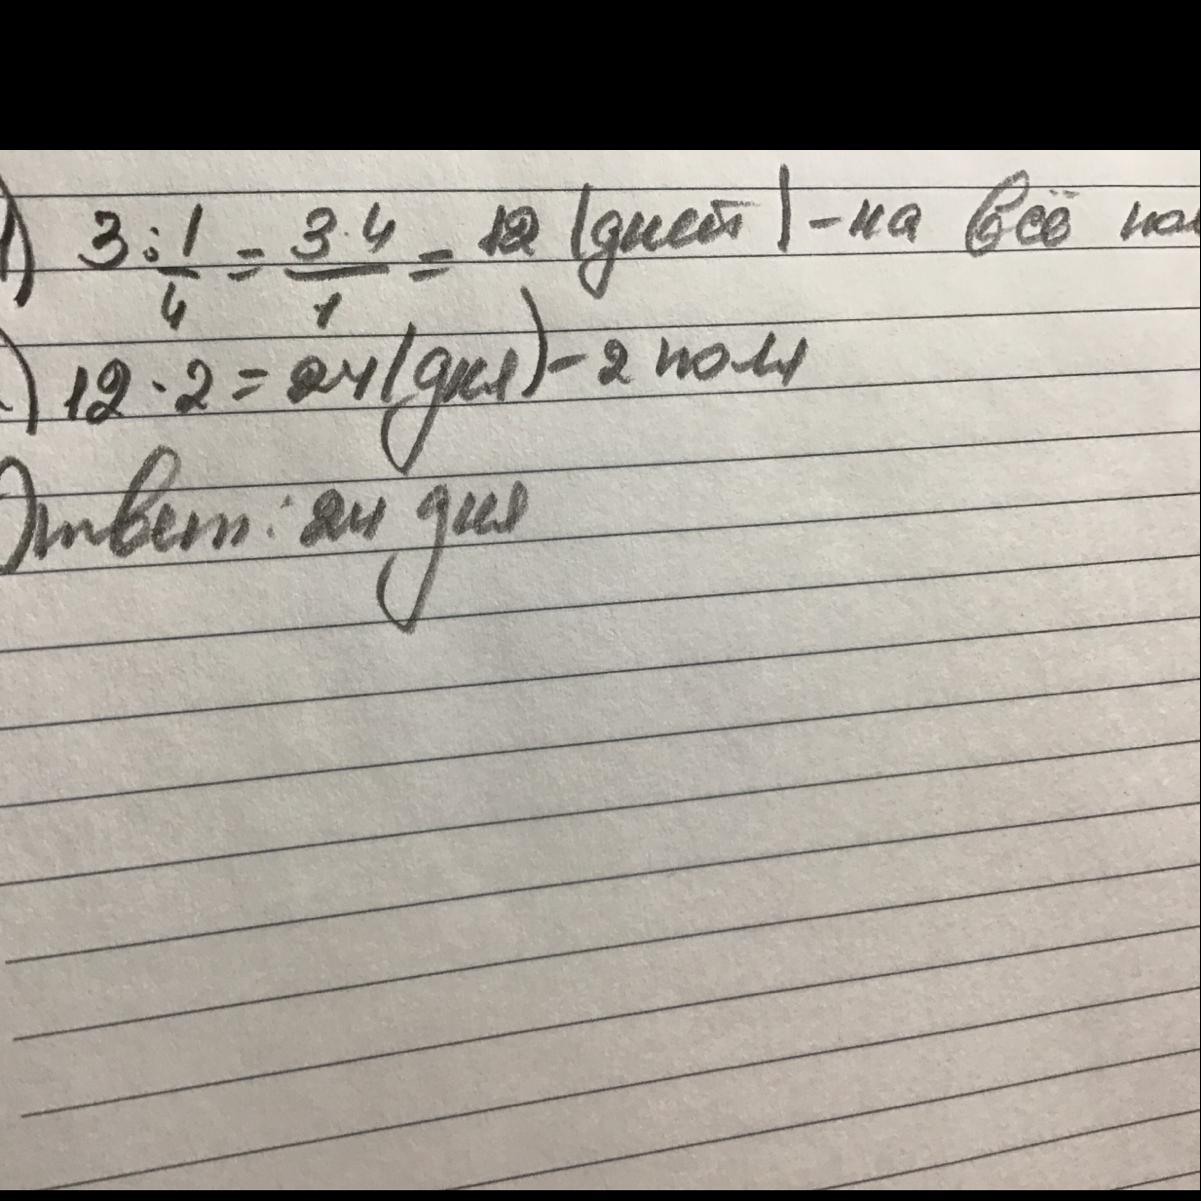 1) 3 : 1/4 = 3·4/1 = 12 (дней) - на всё пол
) 12 · 2 = 24 (дня) - 2 поля
Ответ: 24 дня